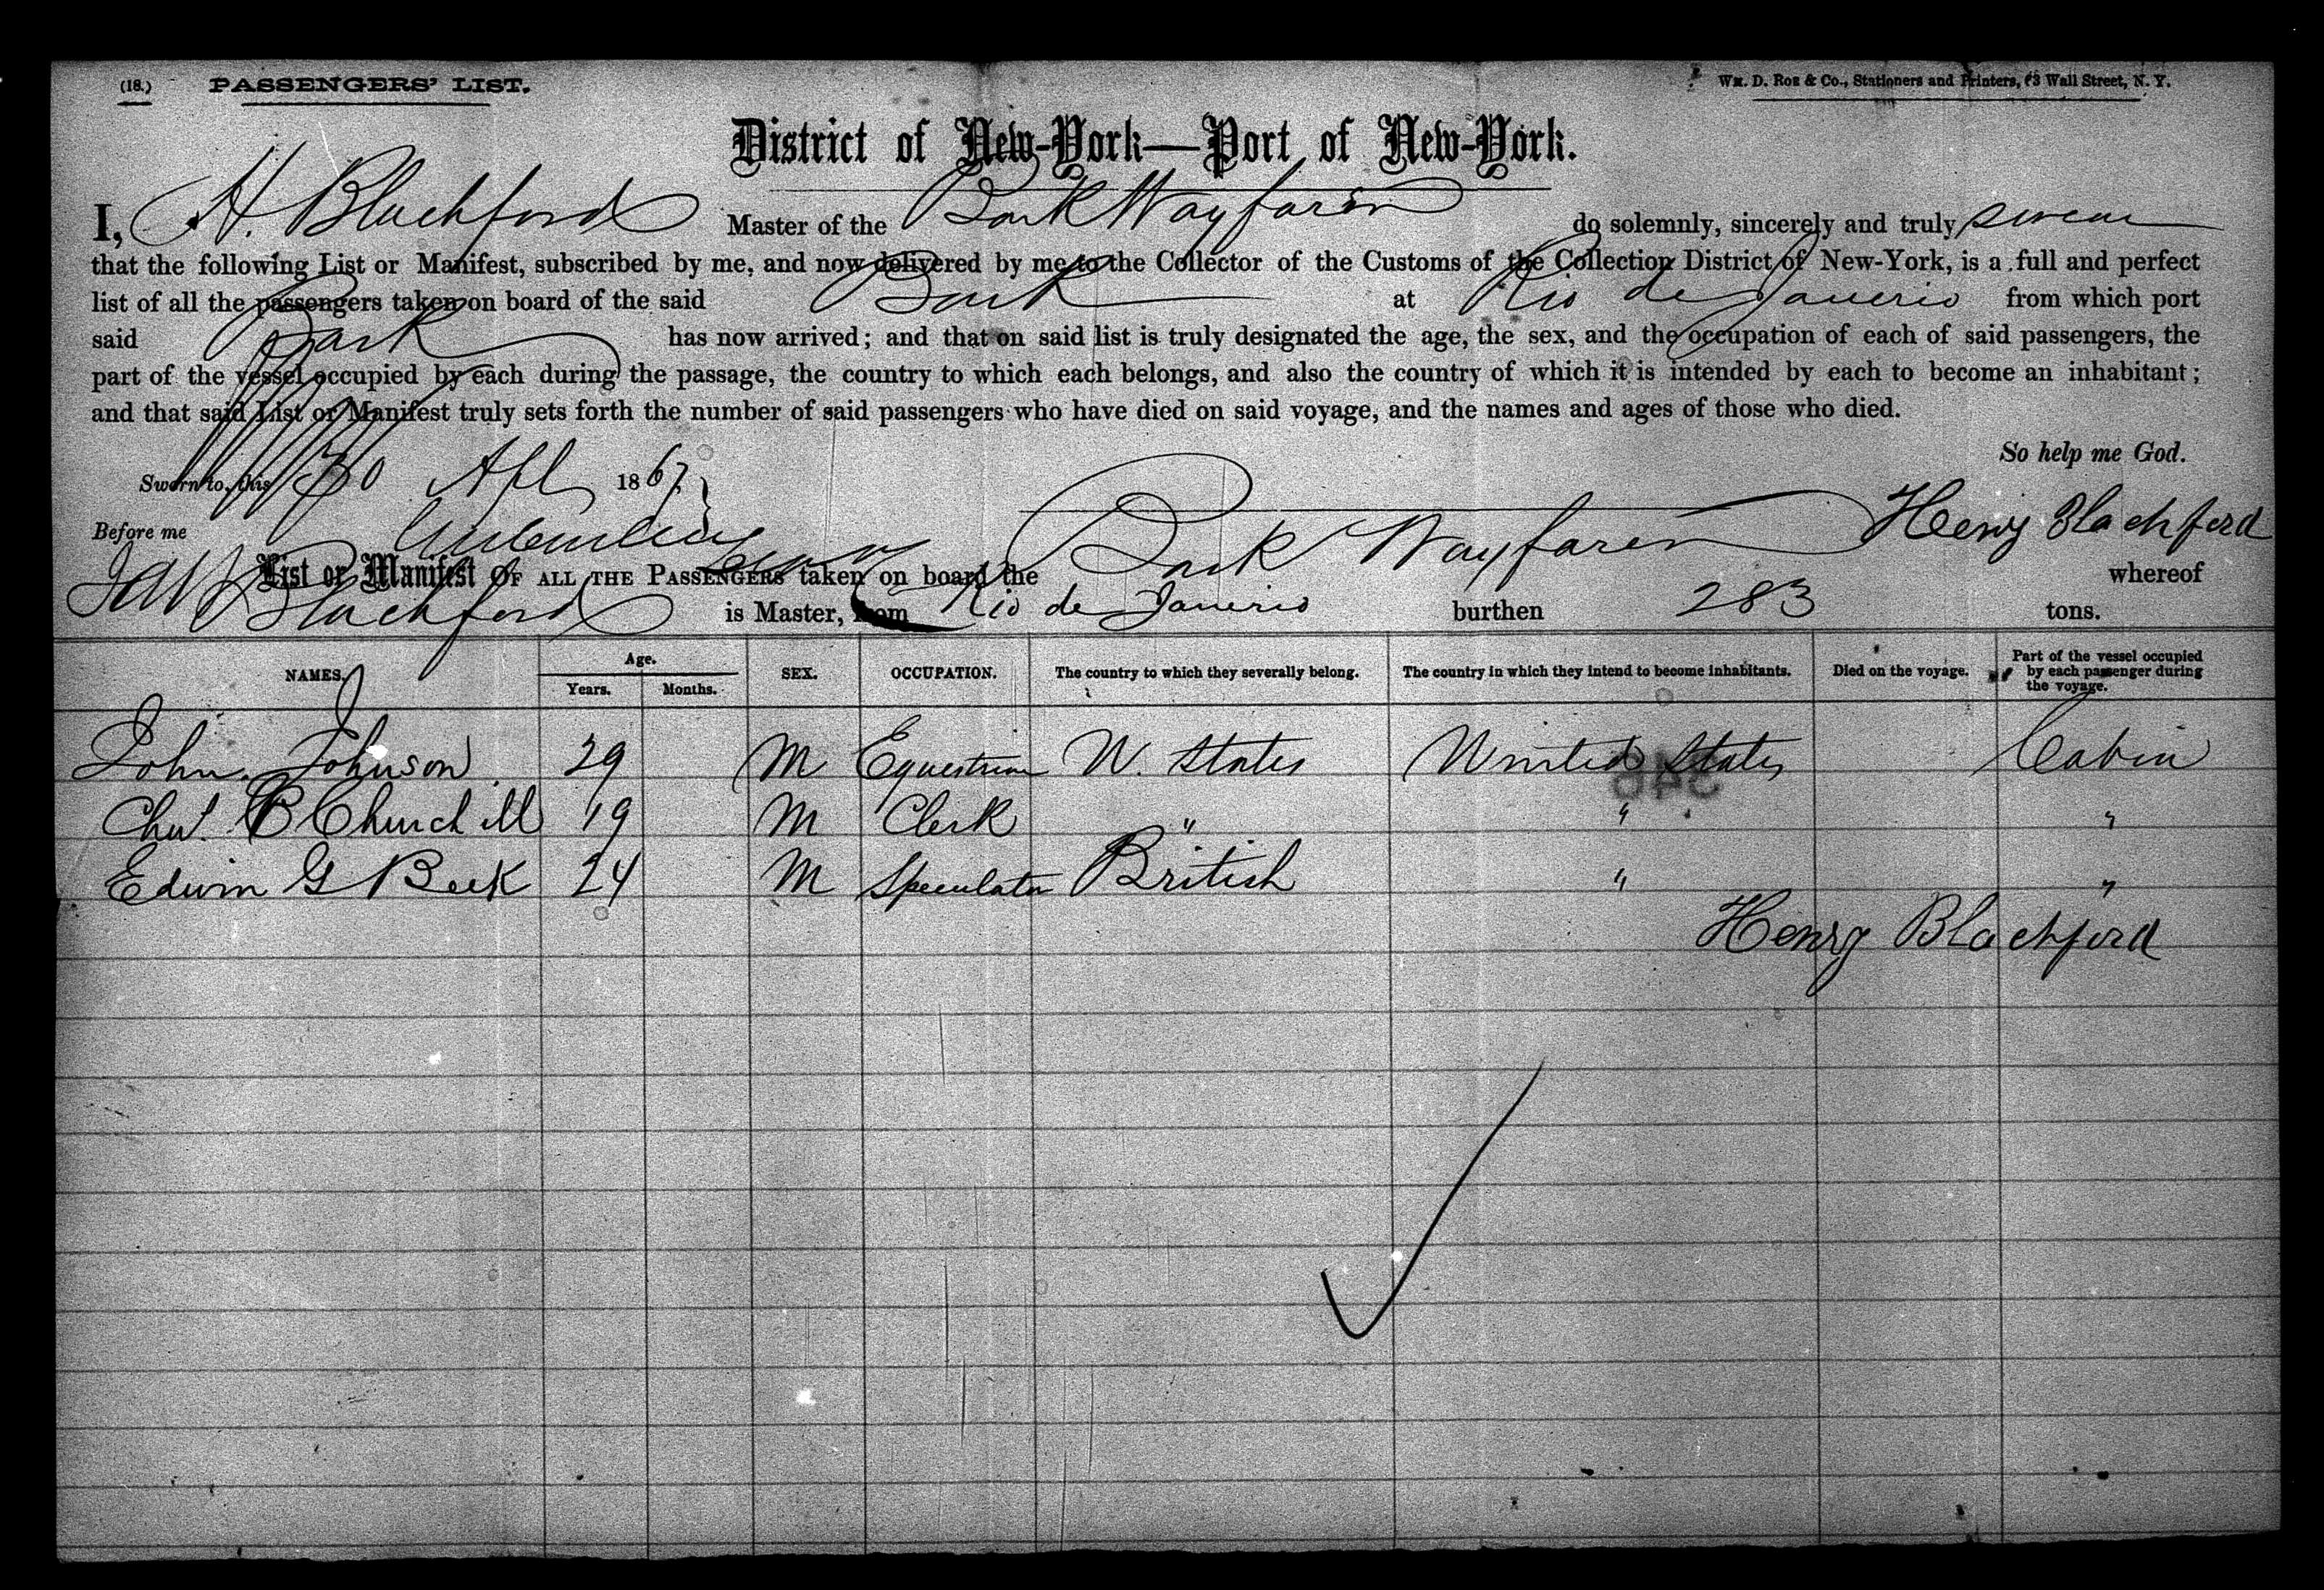 (18.) PASSENGERS' LIST. Wm. D. Roe & Co., Stationers and Printers, 63 Wall Street, N. Y.
District of New-York—Port of New-York.
I, H. Blachford Master of the Bark Wayfarer do solemnly, sincerely and truly swear
that the following List or Manifest, subscribed by me, and now delivered by me to the Collector of the Customs of the Collection District of New-York, is a full and perfect
list of all the passengers taken on board of the said Bark at Rio de Janerio from which port
said Bark has now arrived; and that on said list is truly designated the age, the sex, and the occupation of each of said passengers, the
part of the vessel occupied by each during the passage, the country to which each belongs, and also the country of which it is intended by each to become an inhabitant;
and that said List or Manifest truly sets forth the number of said passengers who have died on said voyage, and the names and ages of those who died.
So help me God.
Sworn to, this 30 Apl 1867
Before me Henry Blachford
List or Manifest OF ALL THE PASSENGERS taken on board the Bark Wayfarer whereof
Blachford is Master, from Rio de Janerio burthen 283 tons.
NAMES. Age. Years. Months. SEX. OCCUPATION. The country to which they severally belong. The country in which they intend to become inhabitants. Died on the voyage. Part of the vessel occupied by each passenger during the voyage.
John Johnson 29 M Equestrian U. States United States Cabin
Chas. P Churchill 19 M Clerk " " "
Edwin G Beek 24 M Speculator British " "
Henry Blachford